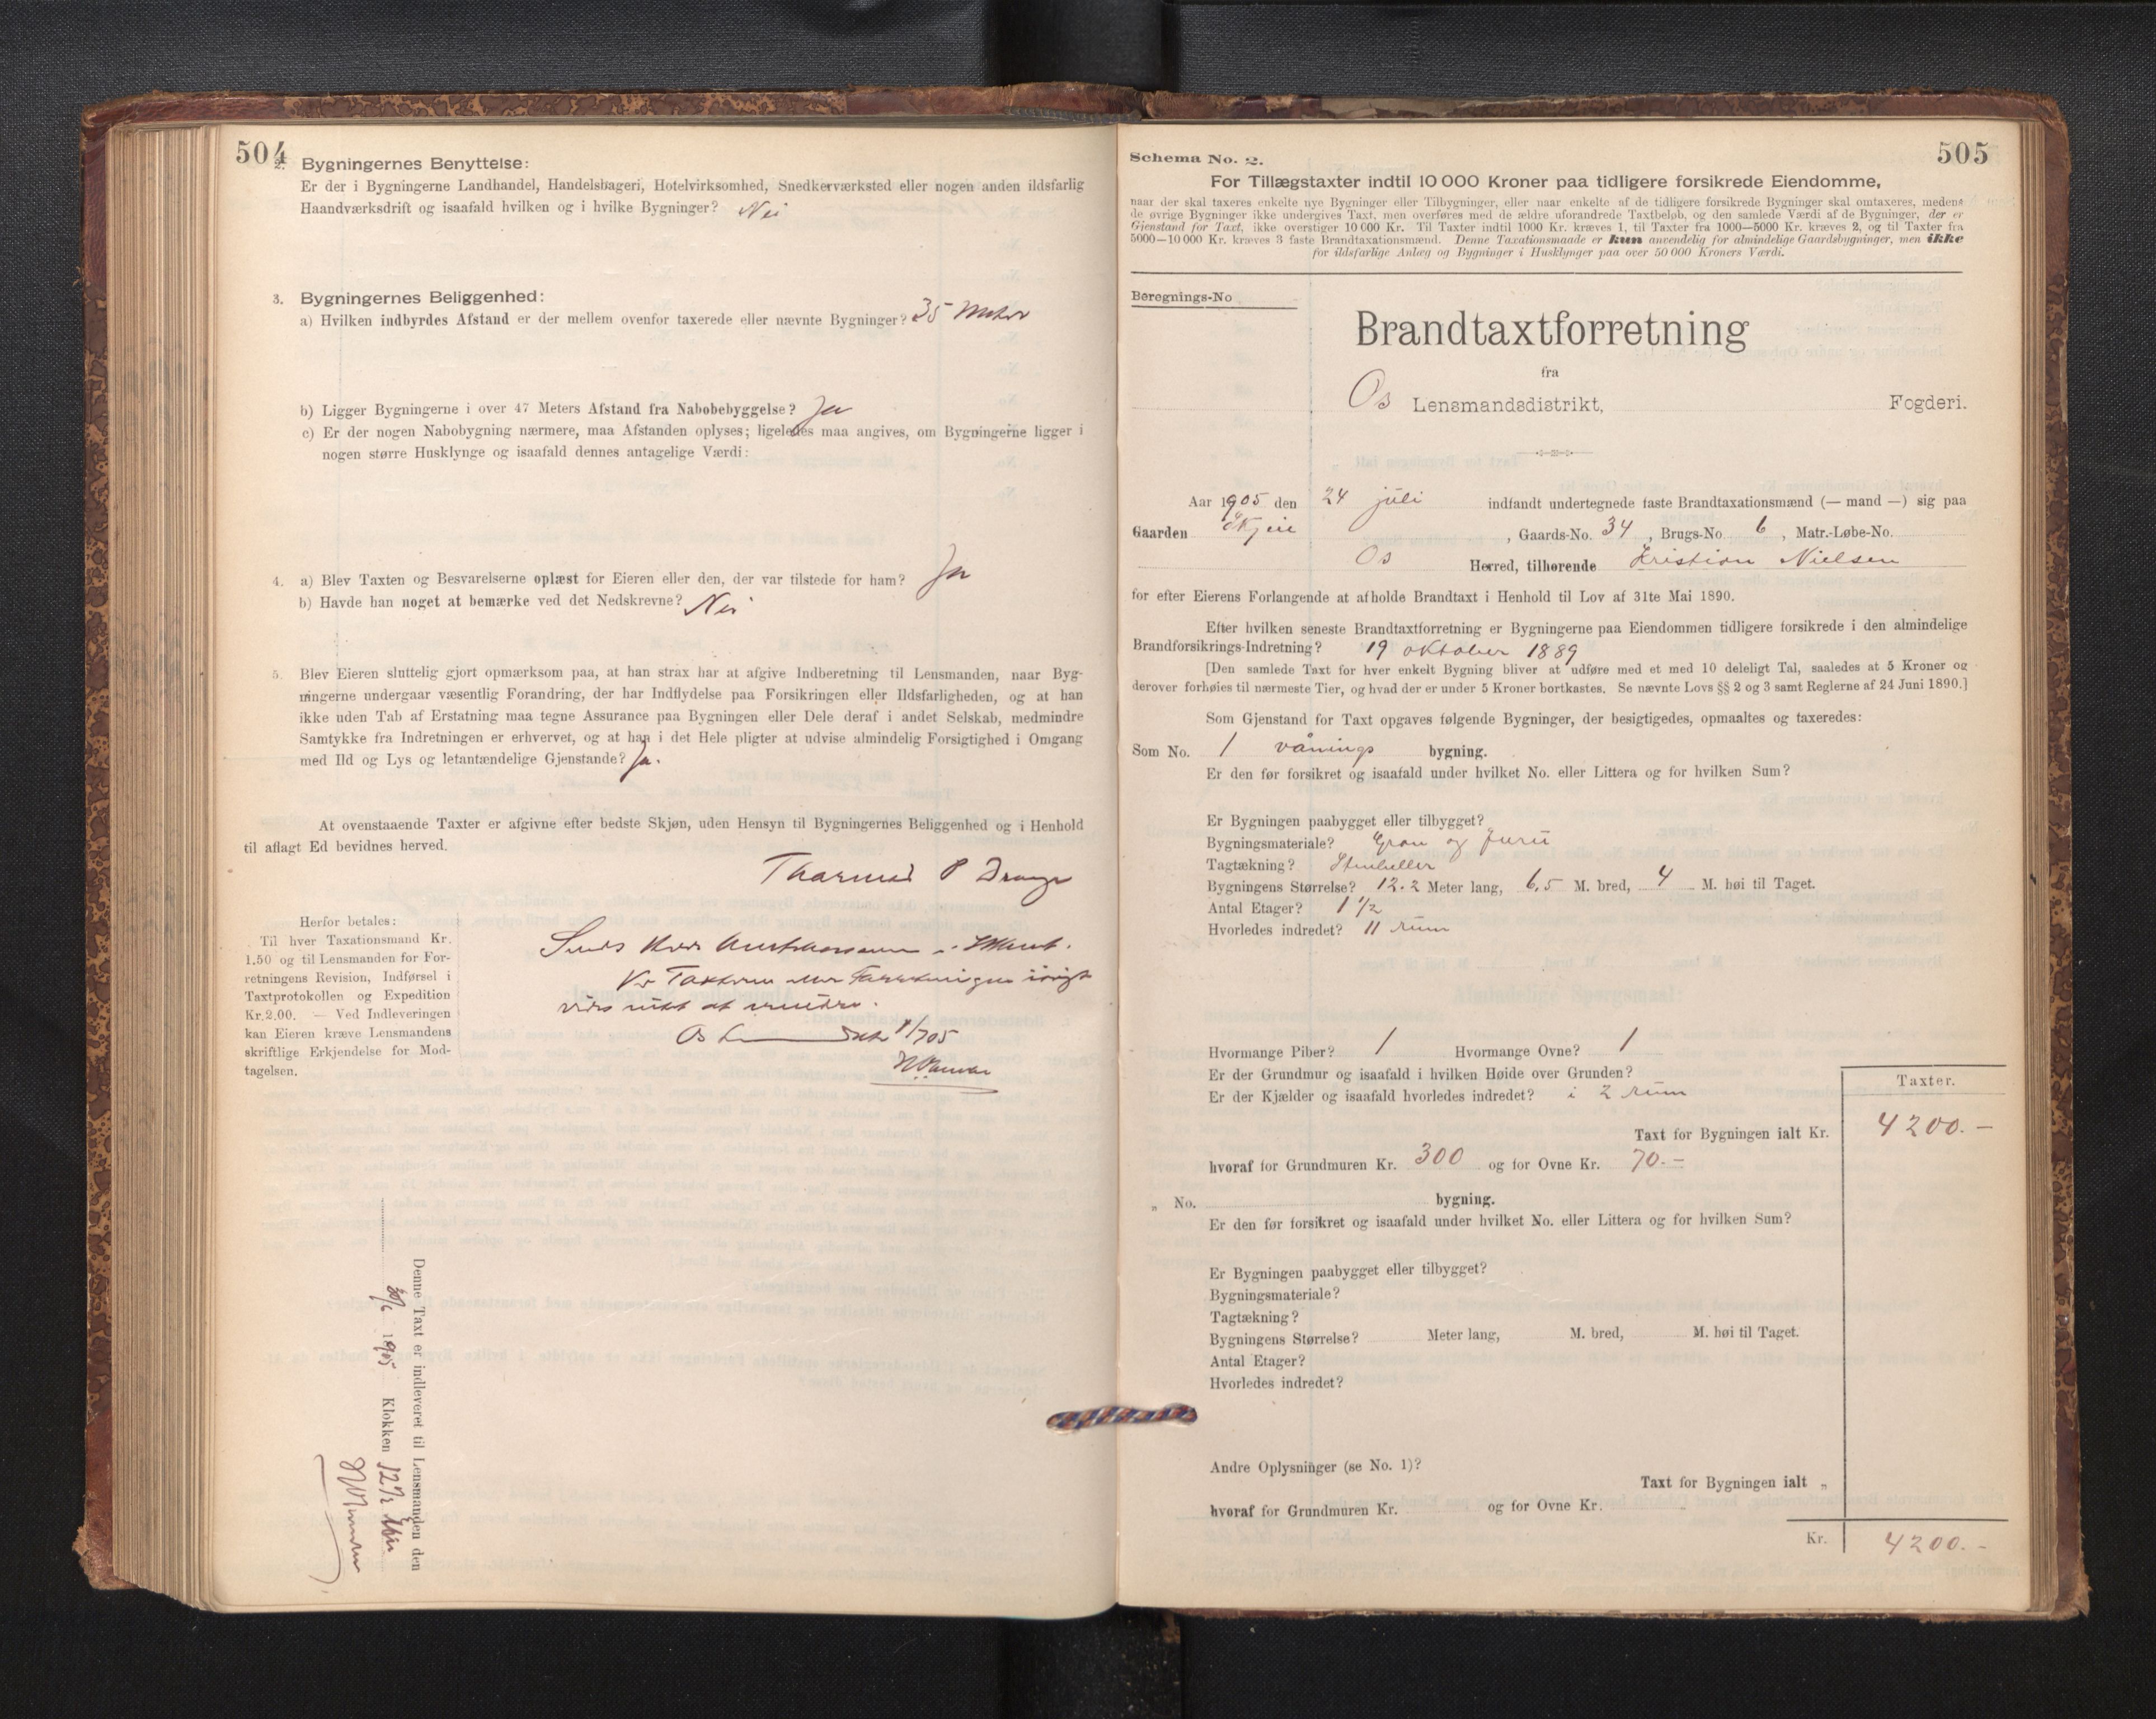 504
2. Bygningernes Benyttelse:
Er der i Bygningerne Landhandel, Handelsbageri, Hotelvirksomhed, Snedkerværksted eller nogen anden ildsfarlig
Haandværksdrift og isaafald hvilken og i hvilke Bygninger? Nei
3. Bygningernes Beliggenhed:
a) Hvilken indbyrdes Afstand er der mellem ovenfor taxerede eller nævnte Bygninger? 35 Meter
b) Ligger Bygningerne i over 47 Meters Afstand fra Nabobebyggelse? Ja
c) Er der nogen Nabobygning nærmere, maa Afstanden oplyses; ligeledes maa angives, om Bygningerne ligger i
nogen større Husklynge og isaafald dennes antagelige Værdi:
4. a) Blev Taxten og Besvarelserne oplæst for Eieren eller den, der var tilstede for ham? Ja
b) Havde han noget at bemærke ved det Nedskrevne? Nei
5. Blev Eieren sluttelig gjort opmærksom paa, at han strax har at afgive Indberetning til Lensmanden, naar Byg-
ningerne undergaar væsentlig Forandring, der har Indflydelse paa Forsikringen eller Ildsfarligheden, og at han
ikke uden Tab af Erstatning maa tegne Assurance paa Bygningen eller Dele deraf i andet Selskab, medmindre
Samtykke fra Indretningen er erhvervet, og at han i det Hele pligter at udvise almindelig Forsigtighed i Omgang
med Ild og Lys og letantændelige Gjenstande? Ja.
At ovenstaaende Taxter er afgivne efter bedste Skjøn, uden Hensyn til Bygningernes Beliggenhed og i Henhold
til aflagt Ed bevidnes herved.
P Drange
Herfor betales:
Til hver Taxationsmand Kr.
1.50 og til Lensmanden for For-
retningens Revision, Indførsel i
Taxtprotokollen og Expedition
Kr. 2.00. — Ved Indleveringen
kan Eieren kræve Lensmandens
skriftlige Erkjendelse for Mod-
tagelsen.
Taxterne eller Forretningen iøvrigt
vides intet at erindre.
Os
Denne Taxt er indleveret til Lensmanden den
30/6 1905 Klokken 12 1/2
505
Schema No. 2.
For Tillægstaxter indtil 10 000 Kroner paa tidligere forsikrede Eiendomme,
naar der skal taxeres enkelte nye Bygninger eller Tilbygninger, eller naar enkelte af de tidligere forsikrede Bygninger skal omtaxeres, medens
de øvrige Bygninger ikke undergives Taxt, men overføres med de ældre uforandrede Taxtbeløb, og den samlede Værdi af de Bygninger, der er
Gjenstand for Taxt, ikke overstiger 10 000 Kr. Til Taxter indtil 1000 Kr. kræves 1, til Taxter fra 1000—5000 Kr. kræves 2, og til Taxter fra
5000—10 000 Kr. kræves 3 faste Brandtaxationsmænd. Denne Taxationsmaade er kun anvendelig for almindelige Gaardsbygninger, men ikke
for ildsfarlige Anlæg og Bygninger i Husklynger paa over 50 000 Kroners Værdi.
Beregnings-No
Brandtaxtforretning
fra
Os Lensmandsdistrikt, Fogderi.
Aar 1905 den 24 juli indfandt undertegnede faste Brandtaxationsmænd (— mand —) sig paa
Gaarden Skjeie, Gaards-No. 34, Brugs-No. 6, Matr.-Løbe-No.
Os Herred, tilhørende Kristian Nielsen
for efter Eierens Forlangende at afholde Brandtaxt i Henhold til Lov af 31te Mai 1890.
Efter hvilken seneste Brandtaxtforretning er Bygningerne paa Eiendommen tidligere forsikrede i den almindelige
Brandforsikrings-Indretning? 19 oktober 1889
[Den samlede Taxt for hver enkelt Bygning bliver at udføre med et med 10 deleligt Tal, saaledes at 5 Kroner og
derover forhøies til nærmeste Tier, og hvad der er under 5 Kroner bortkastes. Se nævnte Lovs §§ 2 og 3 samt Reglerne af 24 Juni 1890.]
Som Gjenstand for Taxt opgaves følgende Bygninger, der besigtigedes, opmaaltes og taxeredes:
Som No. 1 vånings bygning.
Er den før forsikret og isaafald under hvilket No. eller Littera og for hvilken Sum?
Er Bygningen paabygget eller tilbygget?
Bygningsmateriale? Gran og furu
Tagtækning? Stenheller
Bygningens Størrelse? 12.2 Meter lang, 6,5 M. bred, 4 M. høi til Taget.
Antal Etager? 1 1/2
Hvorledes indredet? 11 rum
Hvormange Piber? 1 Hvormange Ovne? 1
Er der Grundmur og isaafald i hvilken Høide over Grunden?
Er der Kjælder og isaafald hvorledes indredet? i 2 rum
Taxter.
Taxt for Bygningen ialt Kr. 4200.-
hvoraf for Grundmuren Kr. 300 og for Ovne Kr. 70.-
„ No. bygning.
Er den før forsikret og isaafald under hvilket No. eller Littera og for hvilken Sum?
Er Bygningen paabygget eller tilbygget?
Bygningsmateriale?
Tagtækning?
Bygningens Størrelse? Meter lang, M. bred, M. høi til Taget.
Antal Etager?
Hvorledes indredet?
Andre Oplysninger (se No. 1)?
Taxt for Bygningen ialt „
hvoraf for Grundmuren Kr. og for Ovne Kr.
Kr. 4200.-